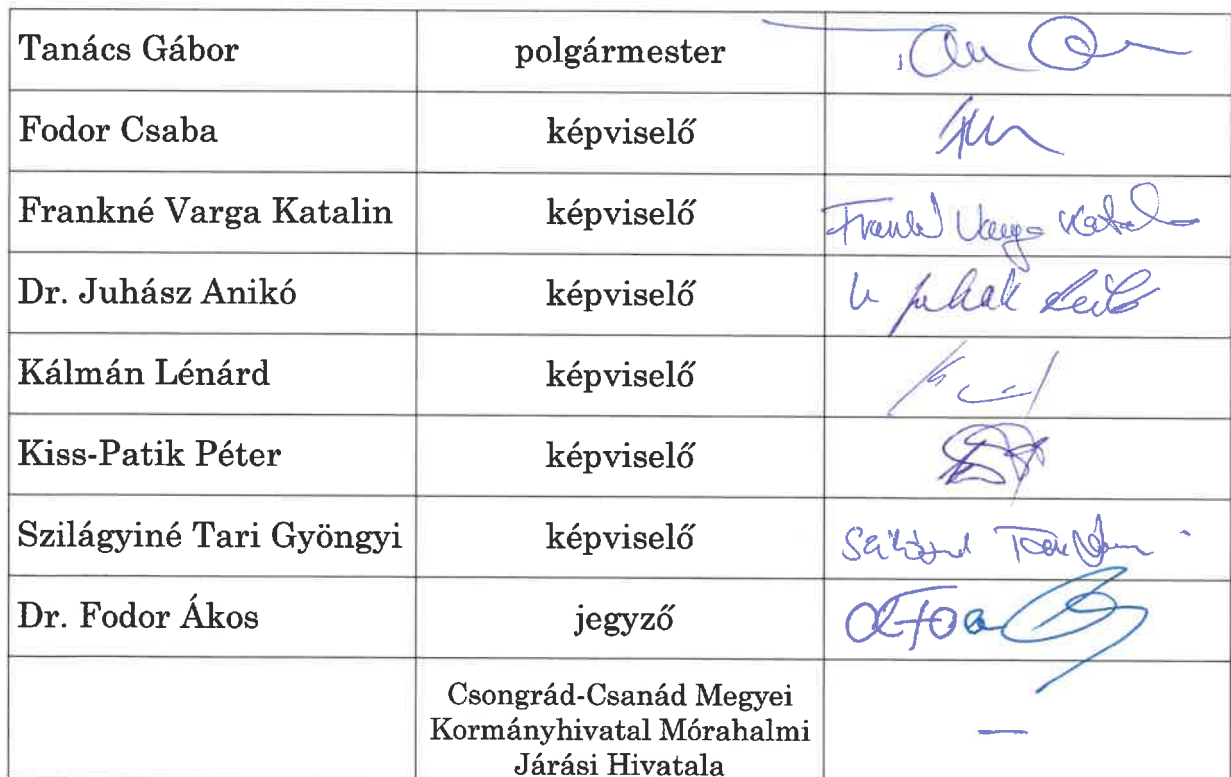 Tanács Gábor polgármester
Fodor Csaba képviselő
Frankné Varga Katalin képviselő Frankné Varga Katalin
Dr. Juhász Anikó képviselő
Kálmán Lénárd képviselő
Kiss-Patik Péter képviselő
Szilágyiné Tari Gyöngyi képviselő
Dr. Fodor Ákos jegyző
Csongrád-Csanád Megyei
Kormányhivatal Mórahalmi —
Járási Hivatala